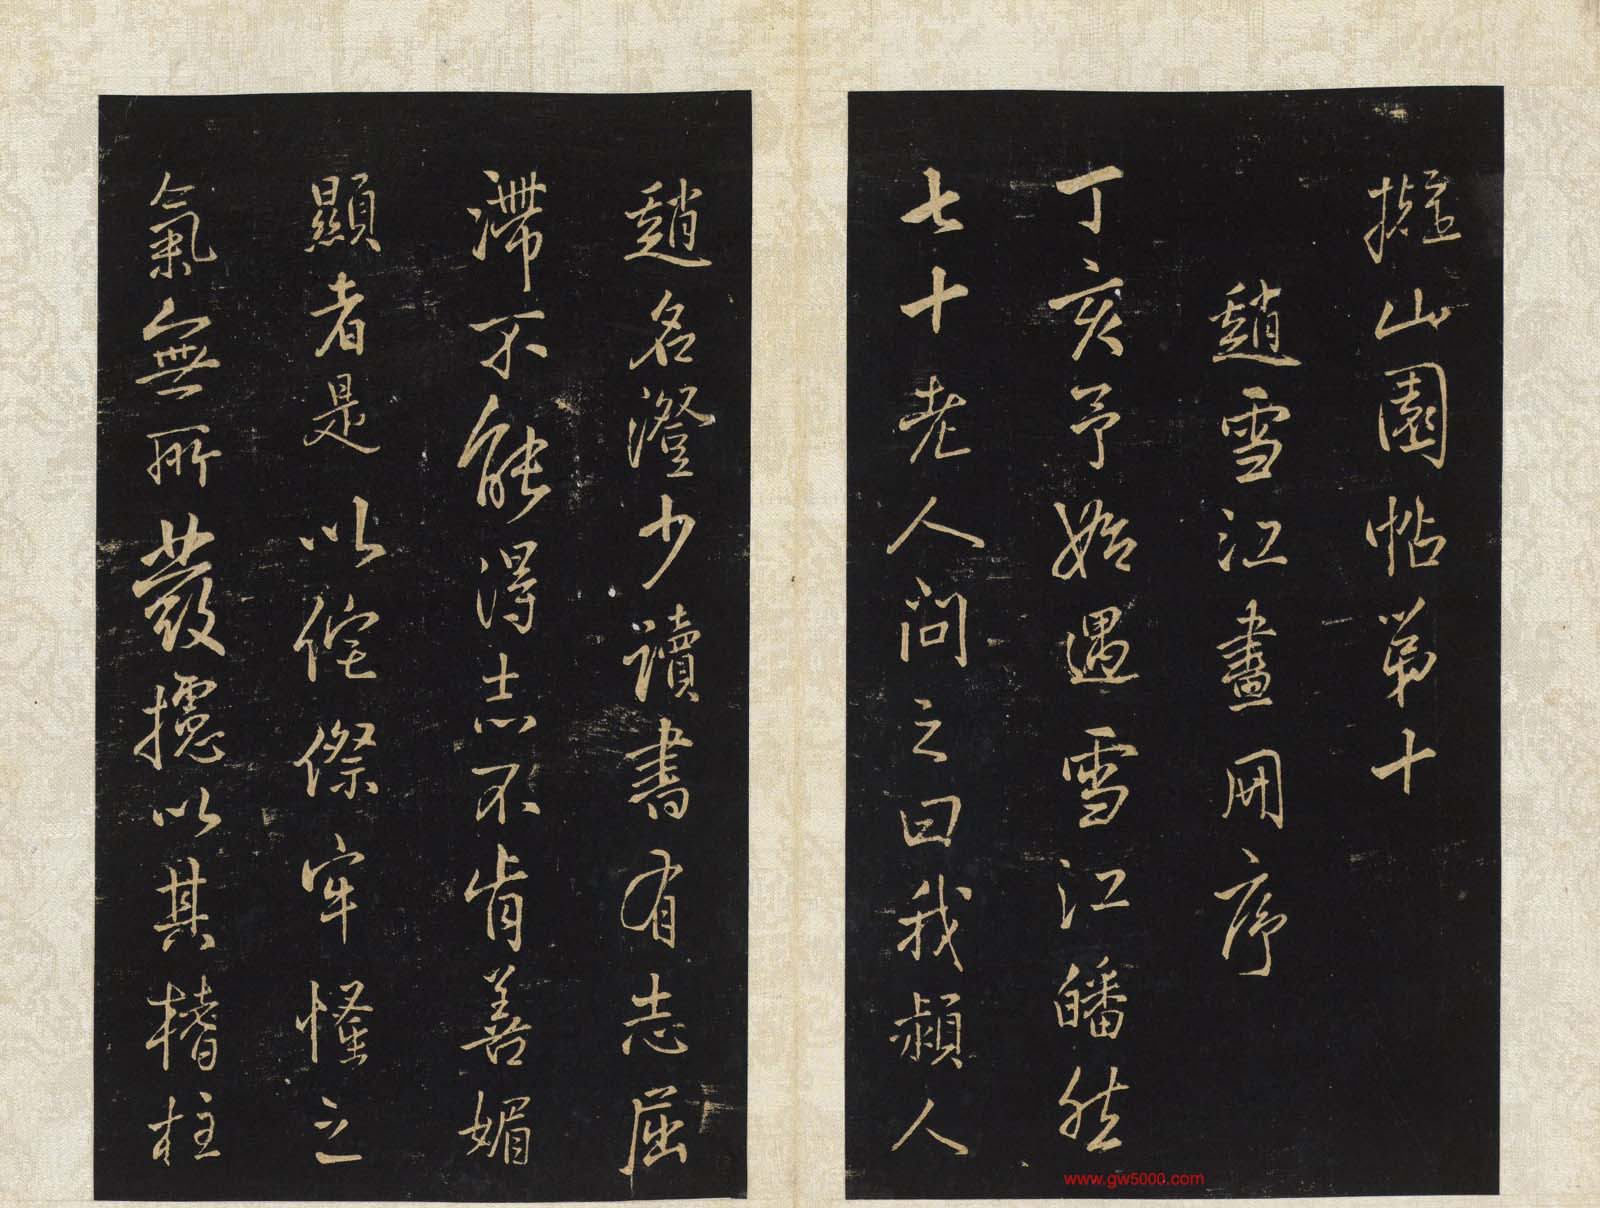 擬山園帖第十
趙雪江畫冊序
丁亥予始遇雪江皤然
七十老人問之曰我潁人
趙名澄少讀書有志屈
滯不能得志不肯善媚
顯者是以侘傺牢慅之
氣無所發攄以其榰柱
www.gw5000.com